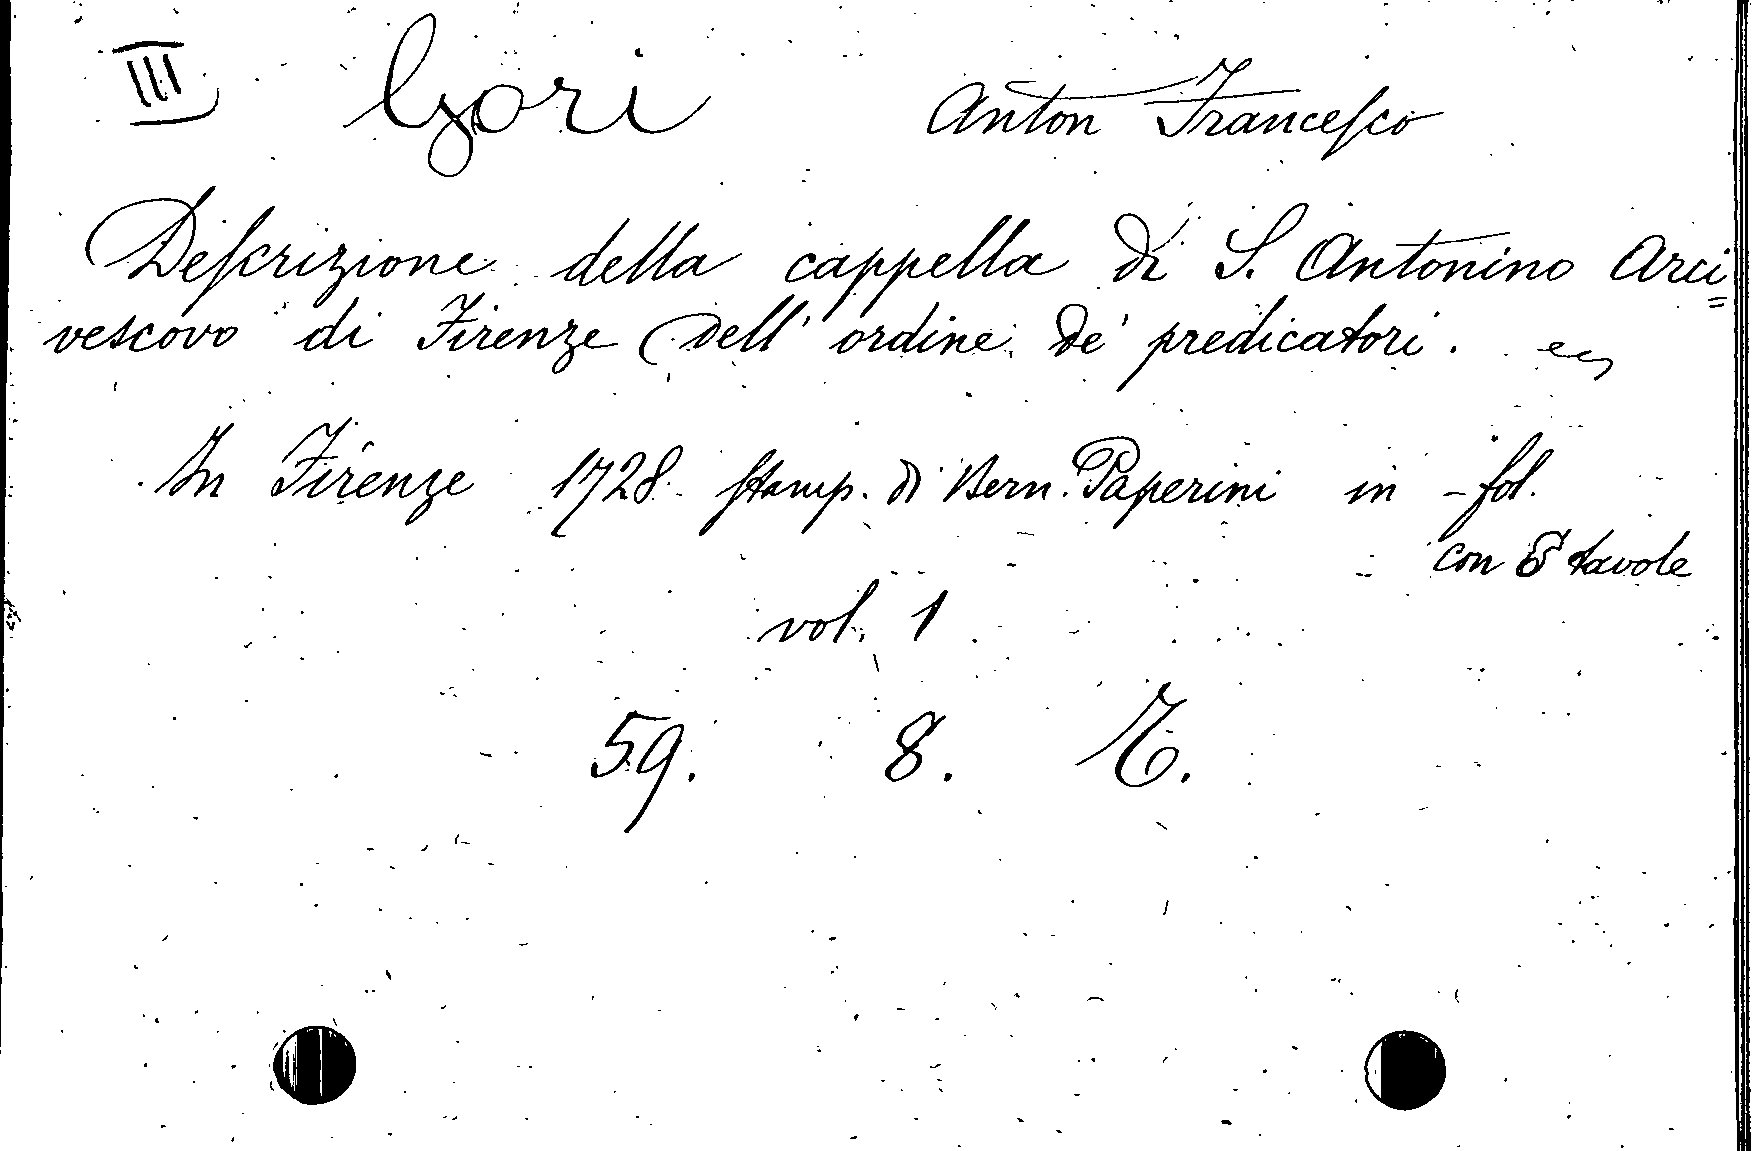 III Gori Anton Francesco
Descrizione della cappella di S. Antonino Arci=
vescovo di Firenze dell' ordine de' predicatori.
In Firenze 1728 stamp. di Bern. Paperini in -fol.
con 8 tavole
vol. 1
59. 8.